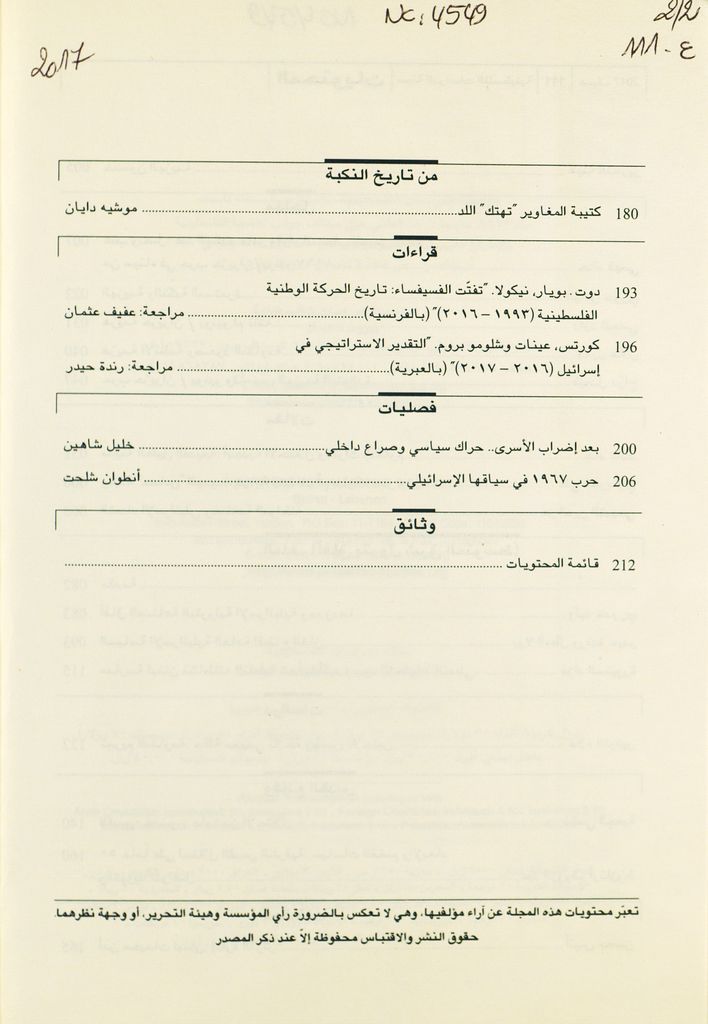 Nc: 4549
2/2
111-ع
2017
من تاريخ النكبة
180 كتيبة المغاوير "تهتك" اللد موشيه دايان
قراءات
193 دوت ـ بويار، نيكولا. "تفتّت الفسيفساء: تاريخ الحركة الوطنية
الفلسطينية (١٩٩٣ – ٢٠١٦)" (بالفرنسية) مراجعة: عفيف عثمان
196 كورتس، عينات وشلومو بروم. "التقدير الاستراتيجي في
إسرائيل (٢٠١٦ – ٢٠١٧)" (بالعبرية) مراجعة: رندة حيدر
فصليات
200 بعد إضراب الأسرى.. حراك سياسي وصراع داخلي خليل شاهين
206 حرب ١٩٦٧ في سياقها الإسرائيلي أنطوان شلحت
وثائق
212 قائمة المحتويات
تعبّر محتويات هذه المجلة عن آراء مؤلفيها، وهي لا تعكس بالضرورة رأي المؤسسة وهيئة التحرير، أو وجهة نظرهما.
حقوق النشر والاقتباس محفوظة إلاّ عند ذكر المصدر